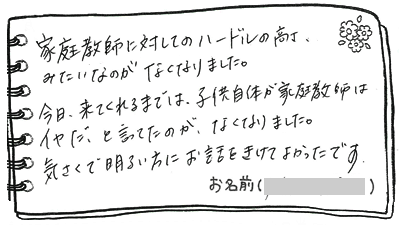 家庭教師に対してのハードルの高さ、
みたいなのがなくなりました。
今日、来てくれるまでは、子供自体が家庭教師は
イヤだ、と言ってたのが、なくなりました。
気さくで明るい方にお話をきけてよかったです。
お名前( )